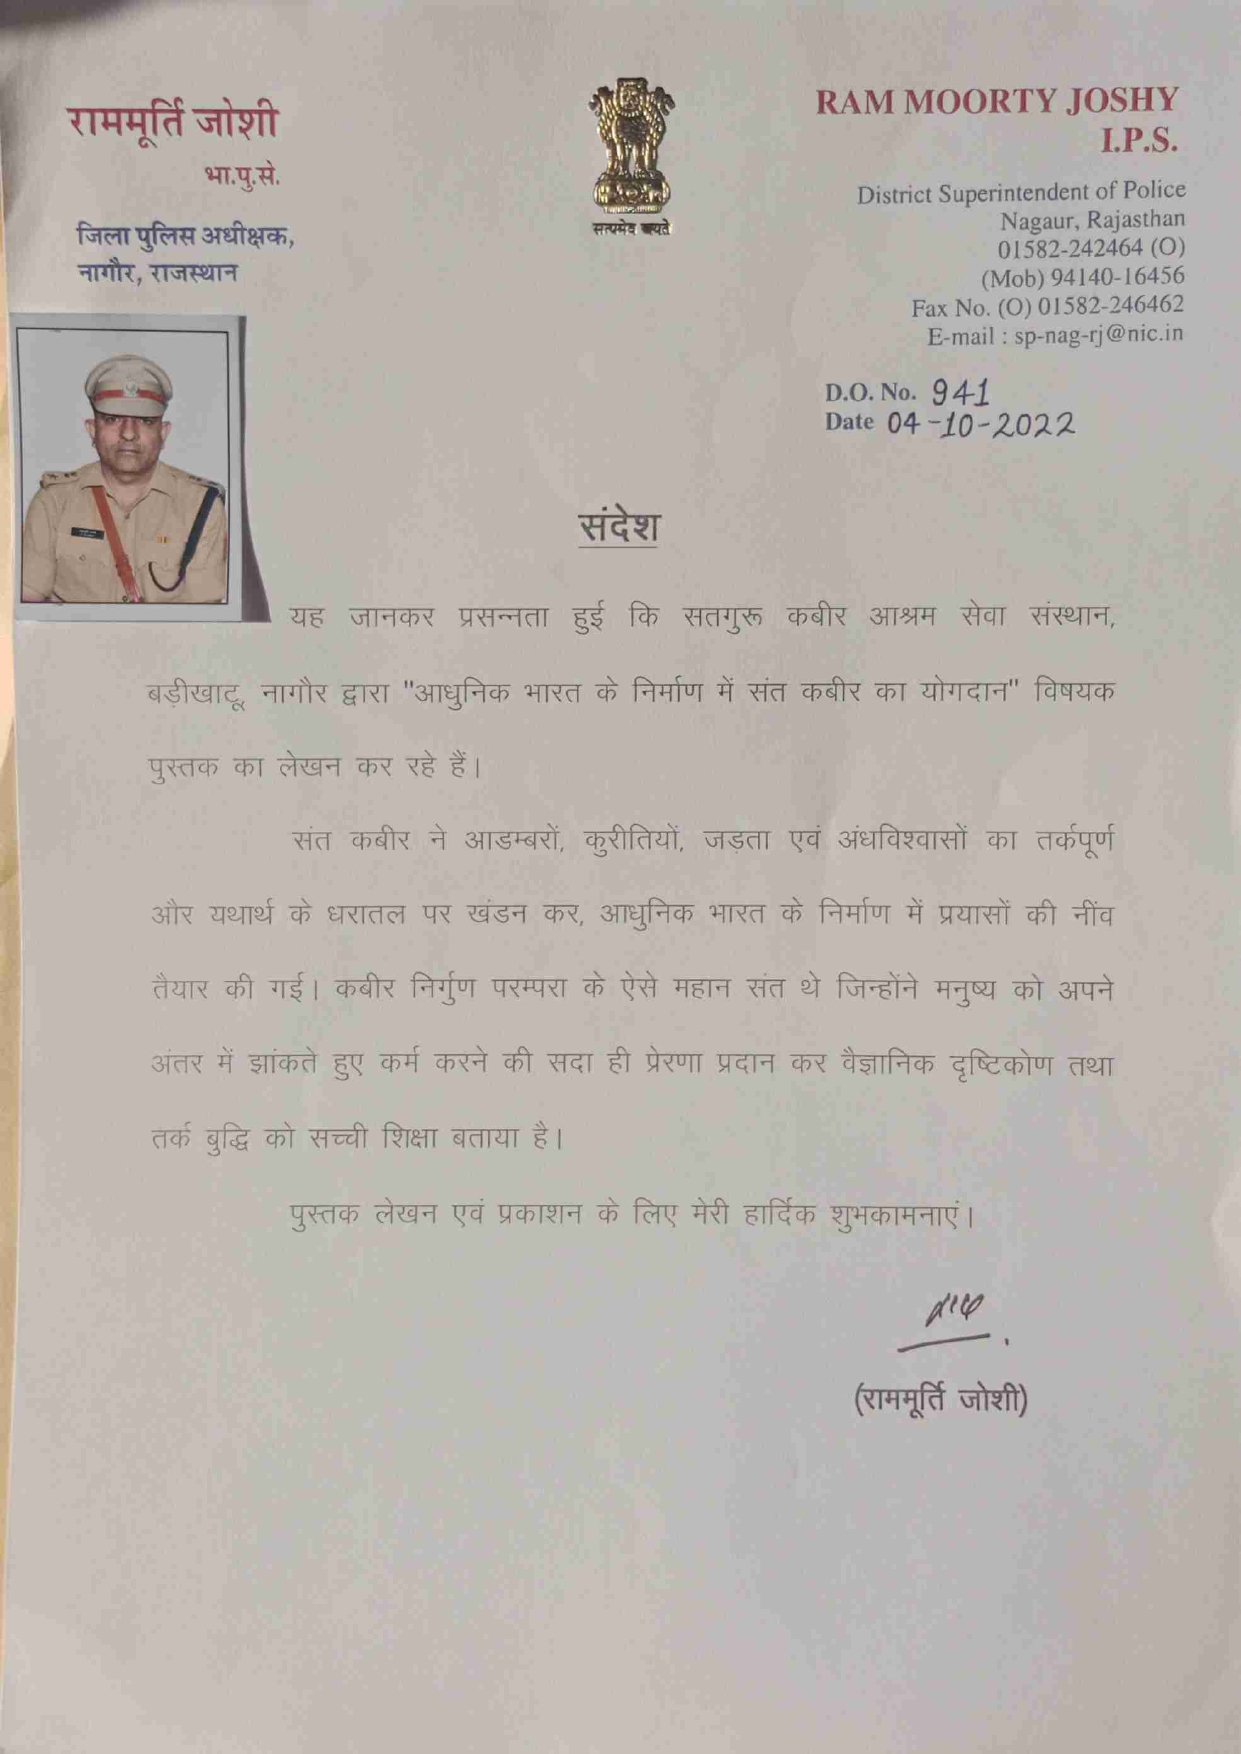 राममूर्ति जोशी
भा.पु.से.
जिला पुलिस अधीक्षक,
नागौर, राजस्थान
सत्यमेव जयते
RAM MOORTY JOSHY
I.P.S.
District Superintendent of Police
Nagaur, Rajasthan
01582-242464 (O)
(Mob) 94140-16456
Fax No. (O) 01582-246462
E-mail : sp-nag-rj@nic.in
D.O. No. 941
Date 04-10-2022
संदेश
यह जानकर प्रसन्नता हुई कि सतगुरू कबीर आश्रम सेवा संस्थान,
बड़ीखाटू, नागौर द्वारा "आधुनिक भारत के निर्माण में संत कबीर का योगदान" विषयक
पुस्तक का लेखन कर रहे हैं।
संत कबीर ने आडम्बरों, कुरीतियों, जड़ता एवं अंधविश्वासों का तर्कपूर्ण
और यथार्थ के धरातल पर खंडन कर, आधुनिक भारत के निर्माण में प्रयासों की नींव
तैयार की गई। कबीर निर्गुण परम्परा के ऐसे महान संत थे जिन्होंने मनुष्य को अपने
अंतर में झांकते हुए कर्म करने की सदा ही प्रेरणा प्रदान कर वैज्ञानिक दृष्टिकोण तथा
तर्क बुद्धि को सच्ची शिक्षा बताया है।
पुस्तक लेखन एवं प्रकाशन के लिए मेरी हार्दिक शुभकामनाएं।
(राममूर्ति जोशी)